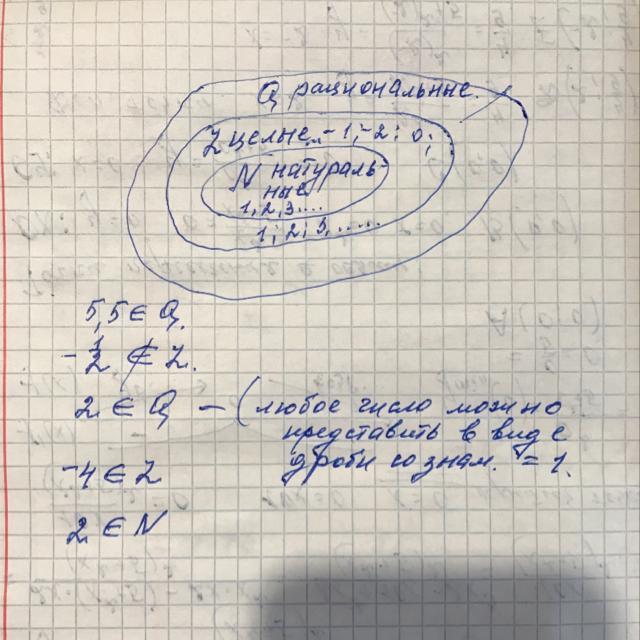 Q рациональные.
Z целые... -1; -2; 0;
N натураль-
ные
1, 2, 3....
1; 2; 3, ......
5,5 ∈ Q.
-1/2 ∉ Z.
2 ∈ Q — (любое число можно
представить в виде
дроби со знам. = 1.
-4 ∈ Z
2 ∈ N